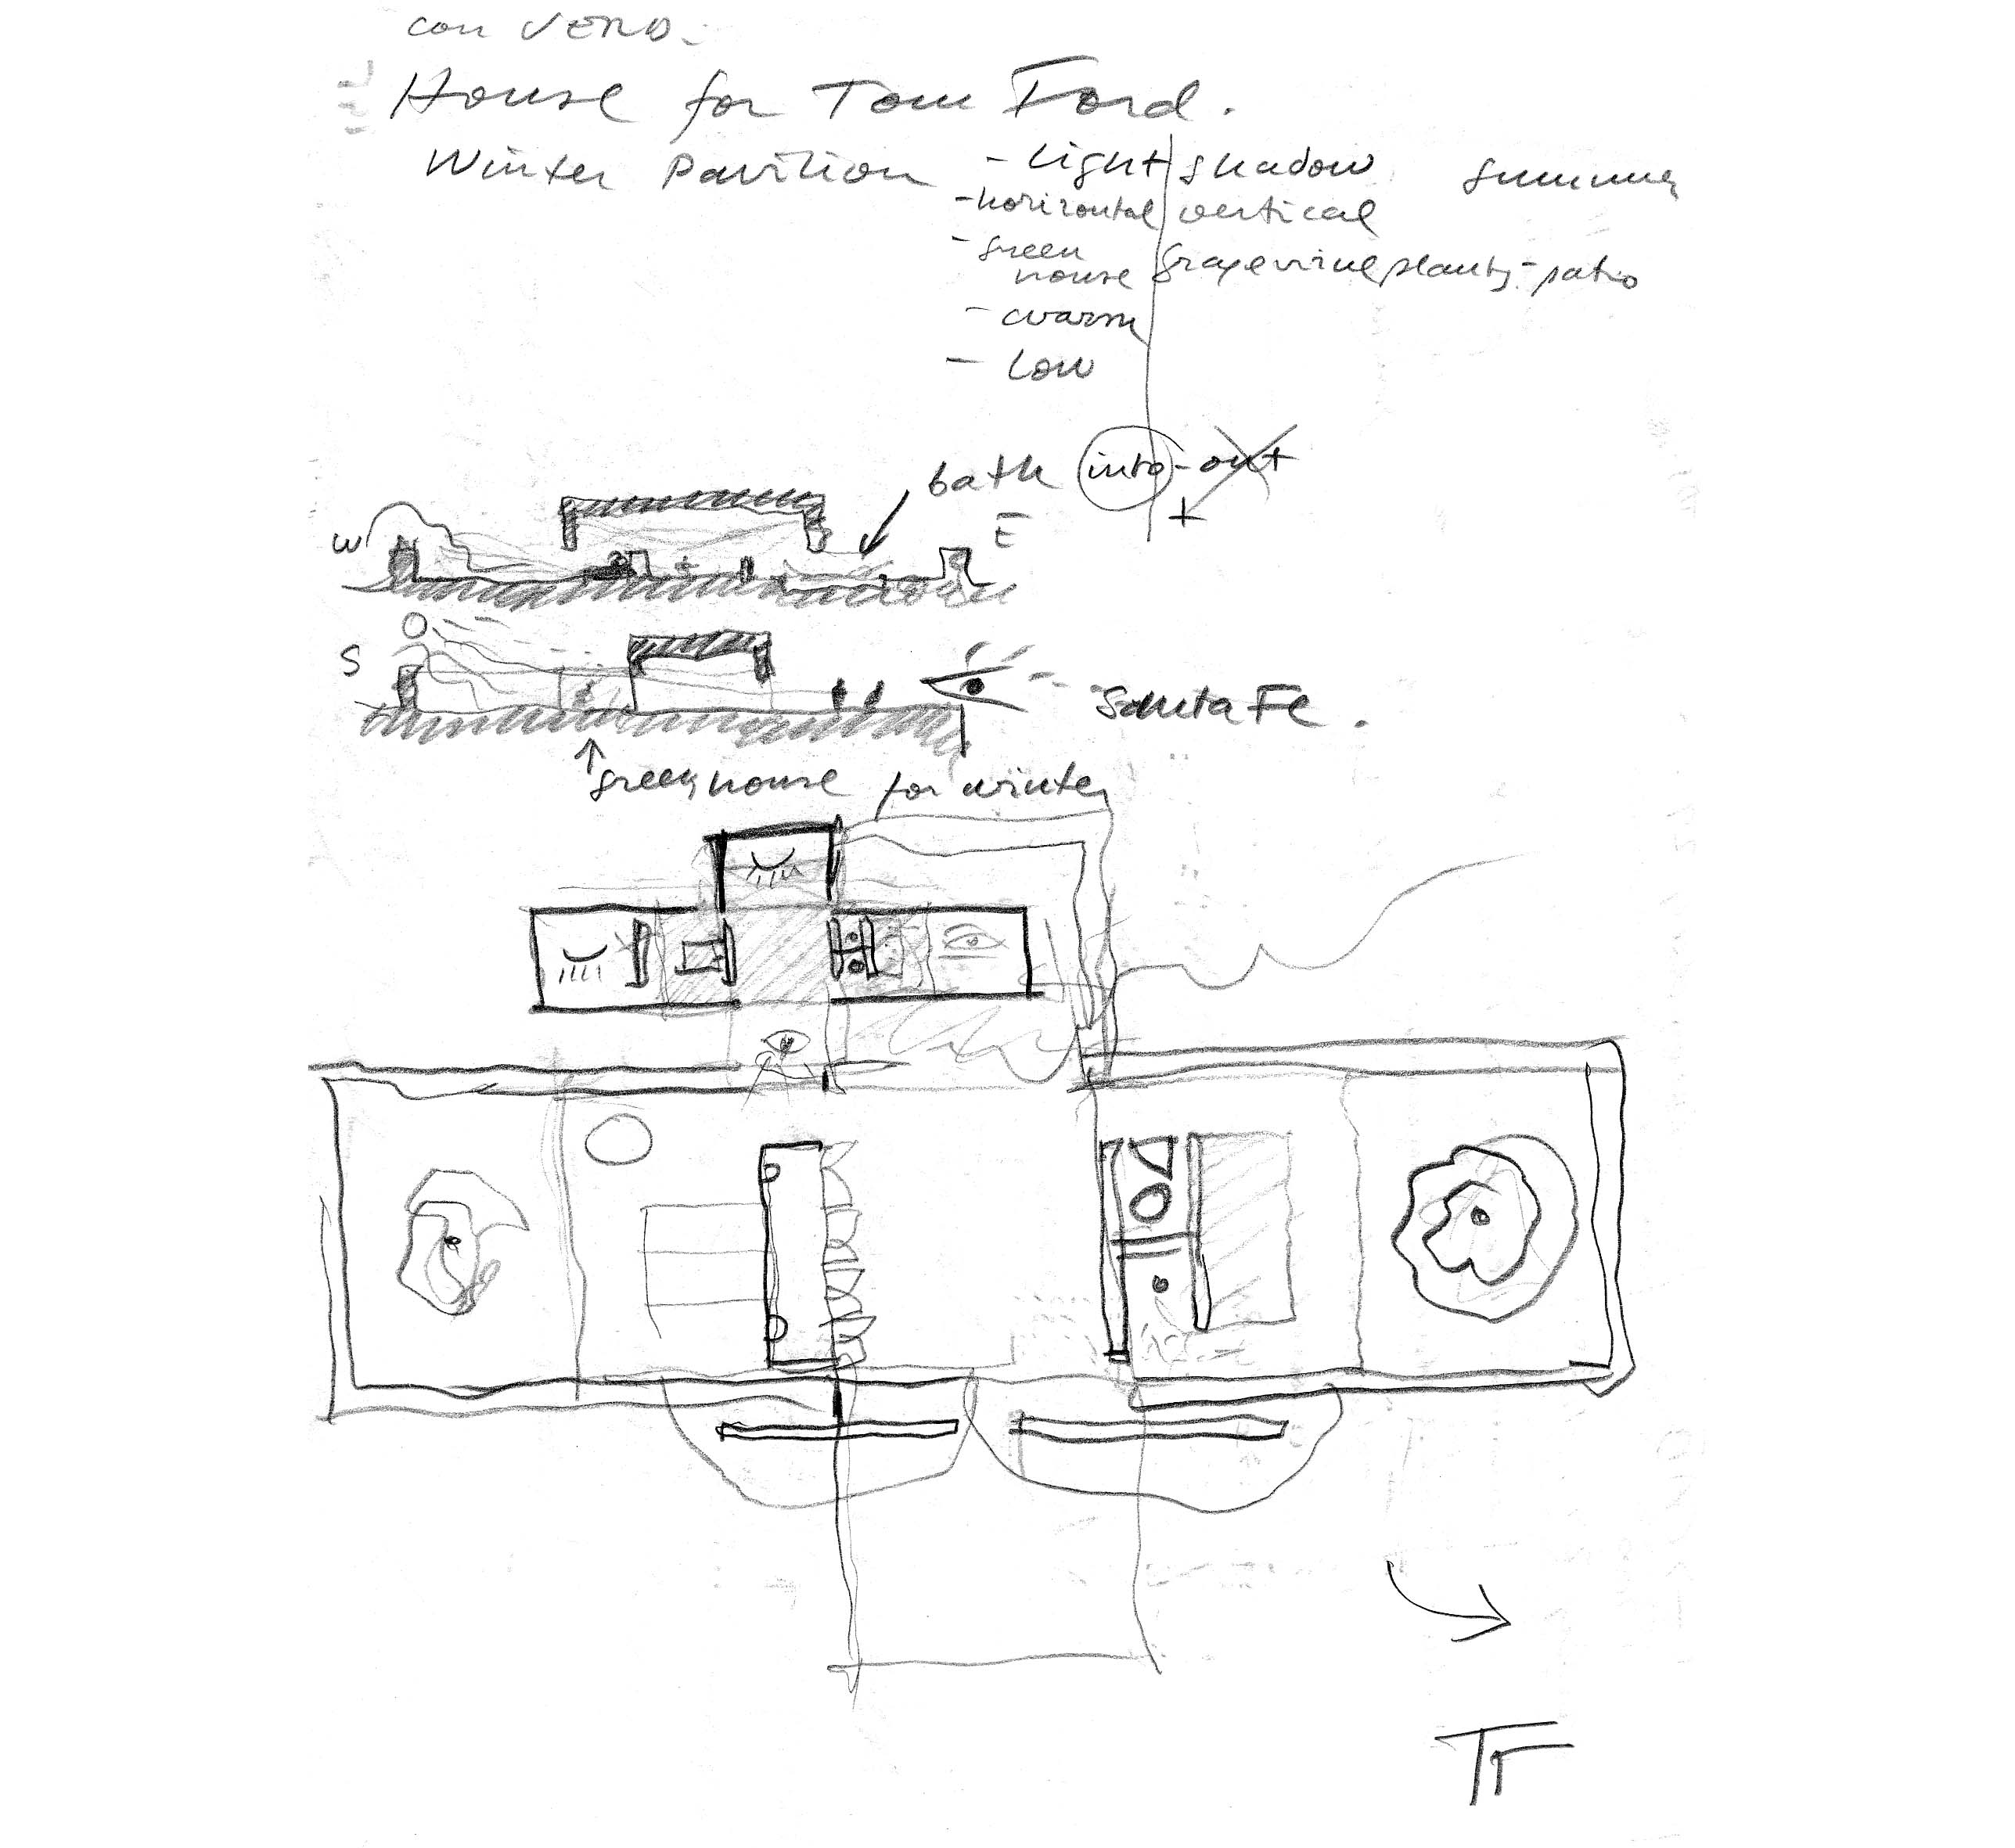 con VERD.
House for Tom Ford.
Winter Pavilion - Light shadow summer
- horizontal vertical
- green house grapevine plants - patio
- warm
- Low
bath into - out
+
W E
S Santa Fe.
greenhouse for winter
TF